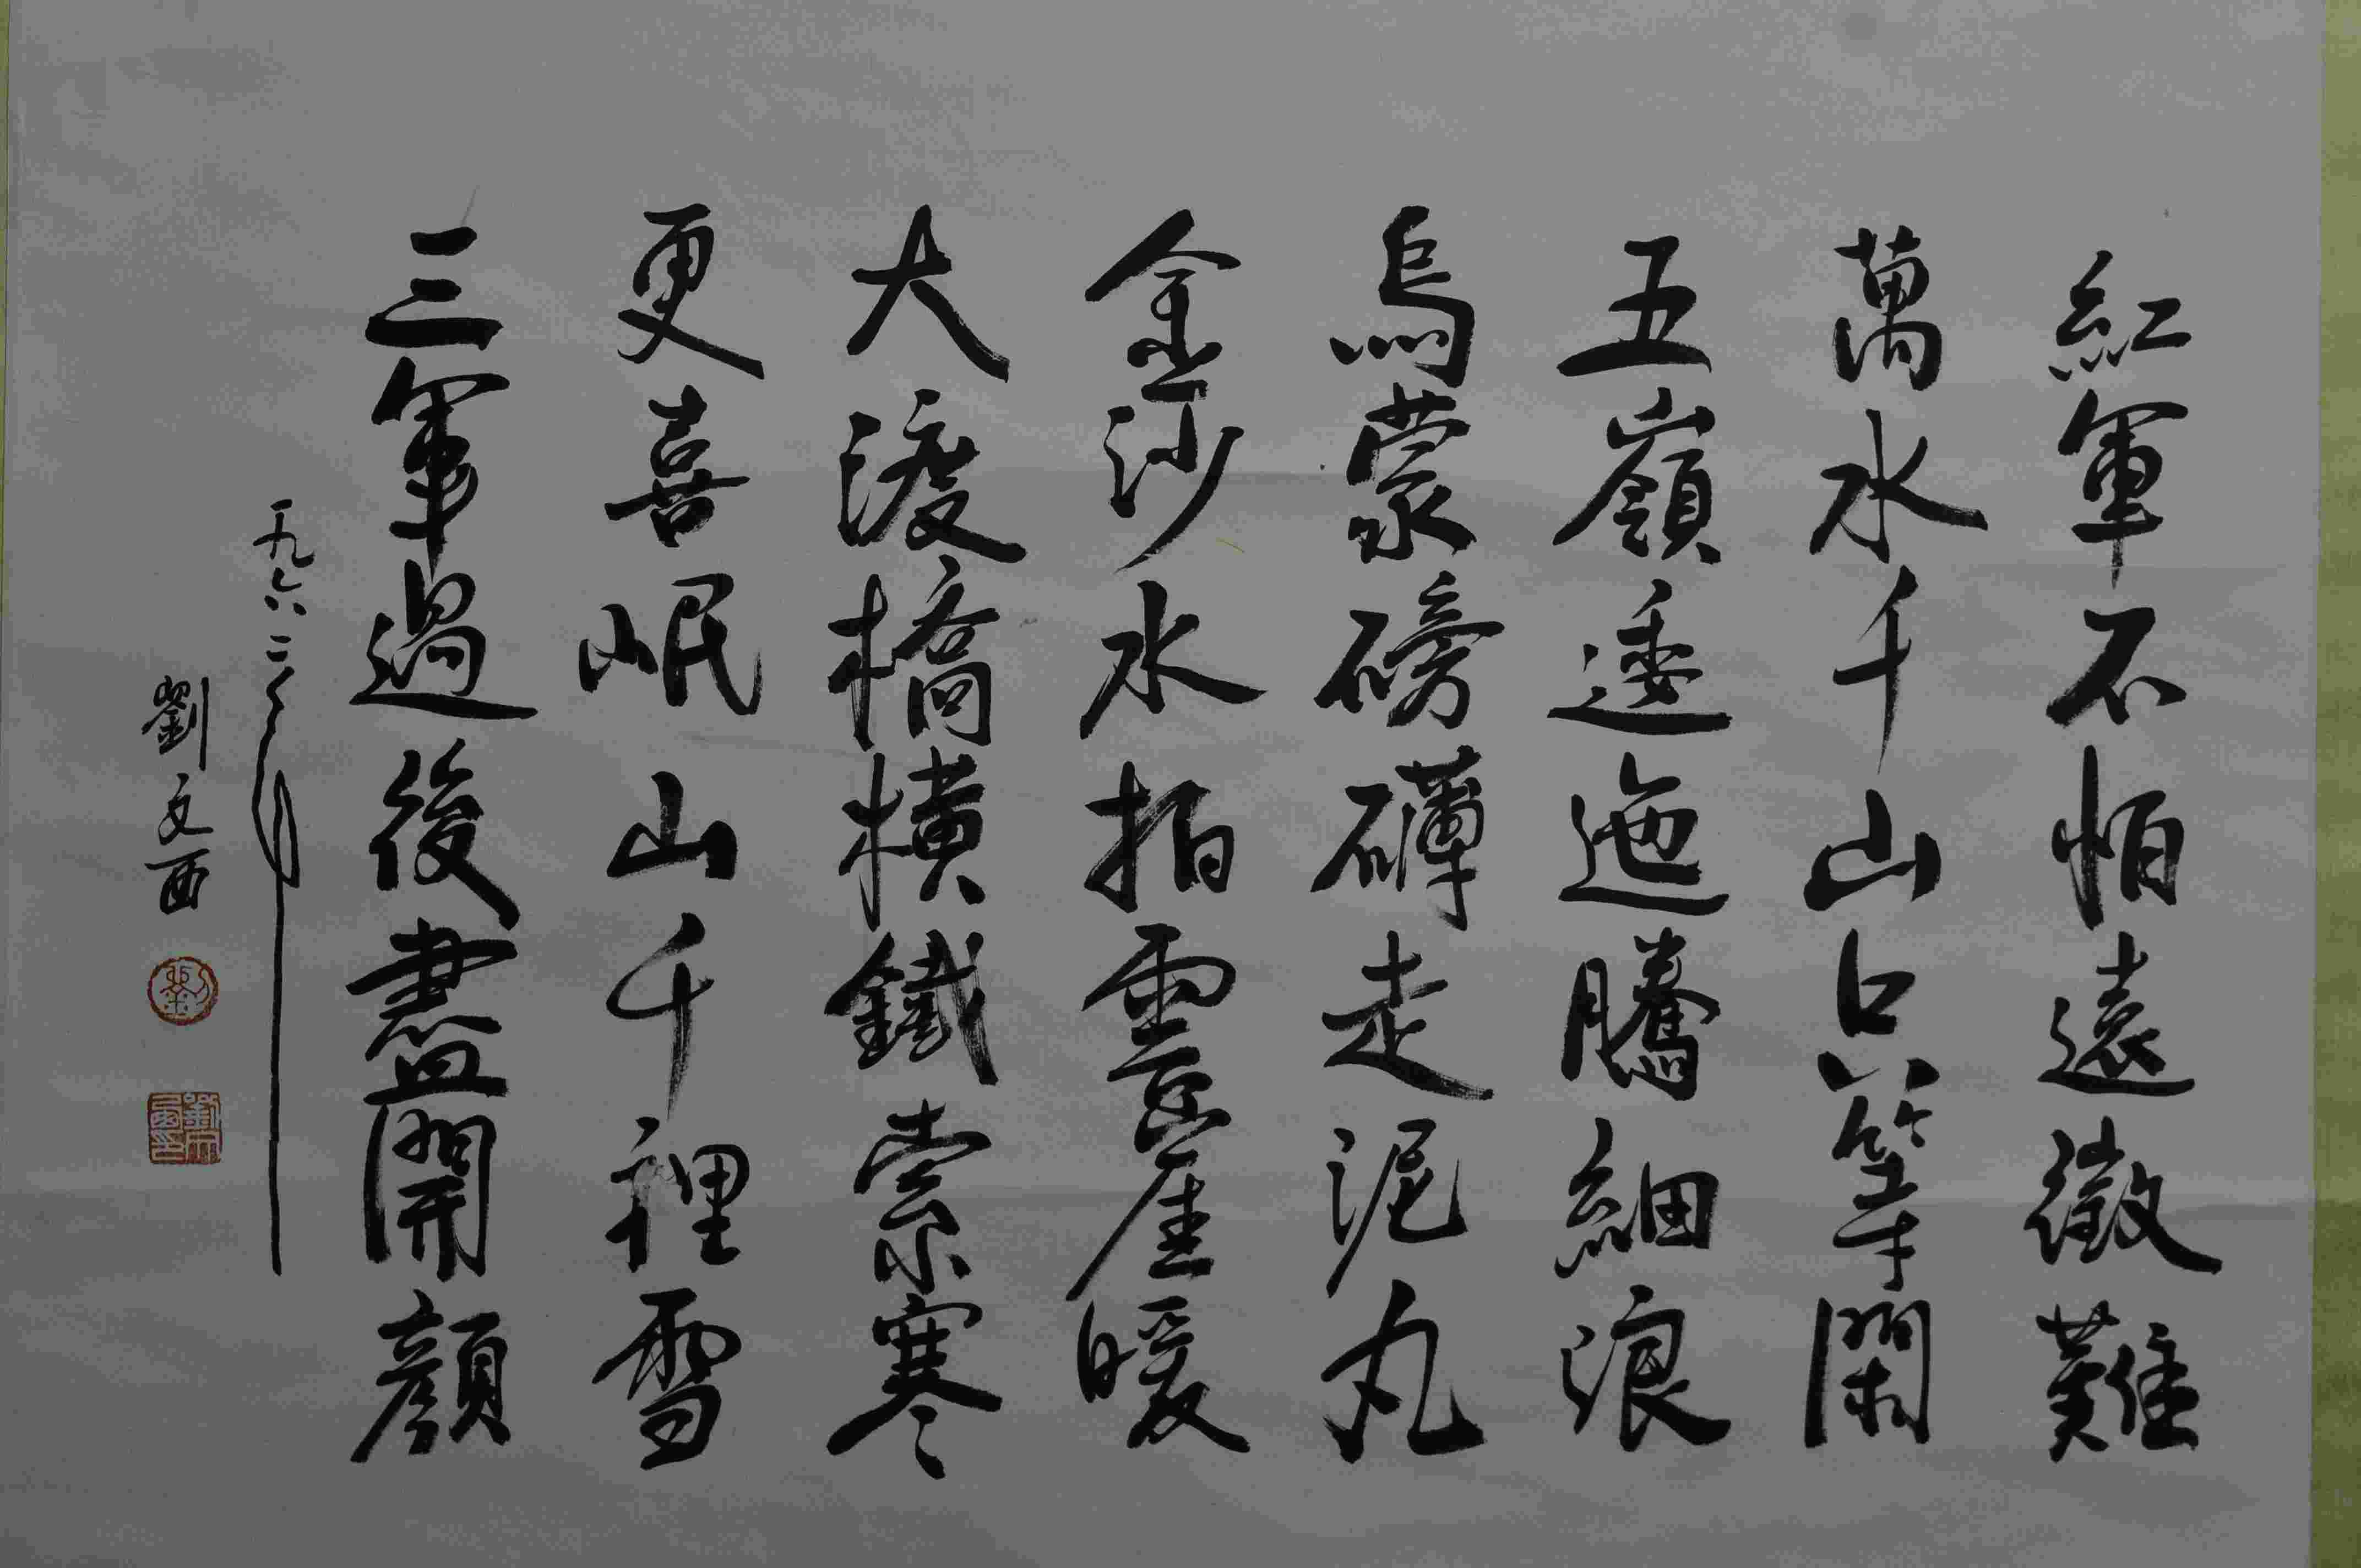 紅軍不怕遠徵難
萬水千山只等閑
五嶺逶迤騰細浪
烏蒙磅礴走泥丸
金沙水拍雲崖暖
大渡橋橫鐵索寒
更喜岷山千裡雪
三軍過後盡開顏
一九六二年
劉文西
劉
劉文西印